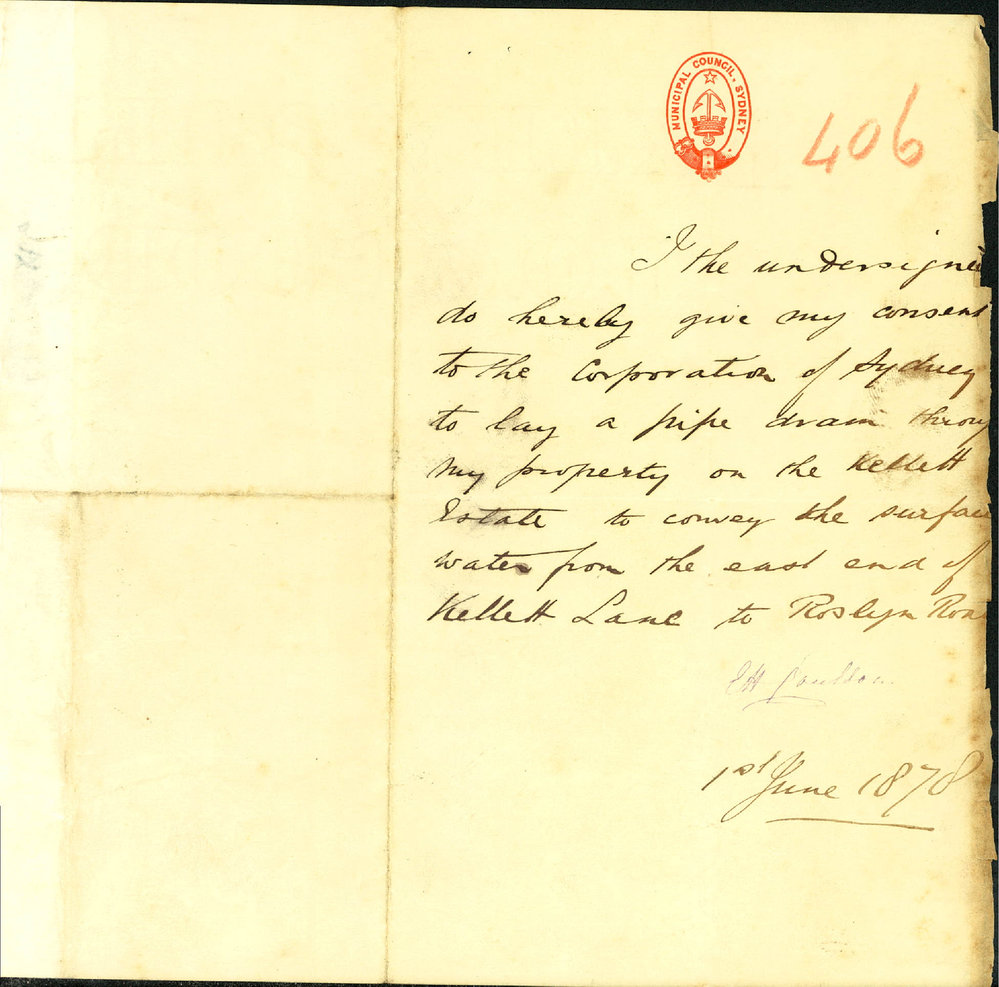 MUNICIPAL COUNCIL. SYDNEY
406
I the undersigned
do hereby give my consent
to the Corporation of Sydney
to lay a pipe drain throug
my property on the Kellett
Estate to convey the surface
water from the east end of
Kellett Lane to Roslyn Road
EH
1st June 1878